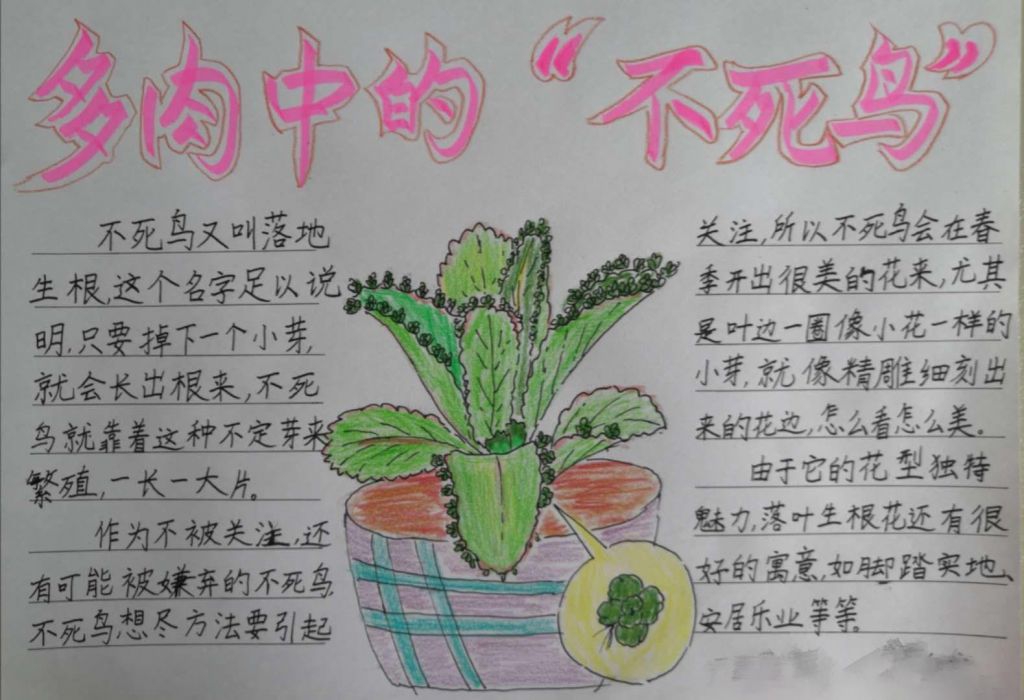 多肉中的“不死鸟”
不死鸟又叫落地
生根,这个名字足以说
明,只要掉下一个小芽,
就会长出根来,不死
鸟就靠着这种不定芽来
繁殖,一长一大片。
作为不被关注,还
有可能被嫌弃的不死鸟,
不死鸟想尽方法要引起
关注,所以不死鸟会在春
季开出很美的花来,尤其
是叶边一圈像小花一样的
小芽,就像精雕细刻出
来的花边,怎么看怎么美。
由于它的花型独特
魅力,落叶生根花还有很
好的寓意,如脚踏实地、
安居乐业等等。